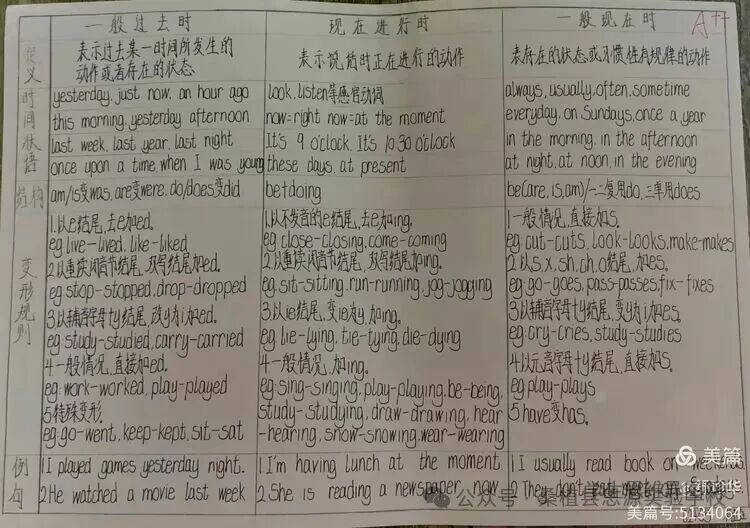 一般过去时 现在进行时 一般现在时 A++
定义 表示过去某一时间所发生的 动作或者存在的状态
表示说话时正在进行的动作
表存在的状态或习惯性有规律的动作
时间状语
yesterday, just now, an hour ago
this morning, yesterday afternoon
last week, last year, last night
once upon a time, when I was young
look, listen等感官动词
now=right now=at the moment
It's 9 o'clock. It's 10:30 o'clock
these days, at present
always, usually, often, sometime
everyday, on Sundays, once a year
in the morning, in the afternoon
at night, at noon, in the evening
结构
am/is变was, are变were, do/does变did
be+doing
be(are, is, am)/一二复用do, 三单用does
变形规则
1.以e结尾,去e加ed.
eg. live-lived, like-liked
2.以重读闭音节结尾,双写结尾加ed.
eg. stop-stopped, drop-dropped
3.以辅音字母+y结尾,改y为i加ed.
eg. study-studied, carry-carried
4.一般情况,直接加ed.
eg. work-worked, play-played
5.特殊变形
eg. go-went, keep-kept, sit-sat
1.以不发音的e结尾,去e加ing.
eg. close-closing, come-coming
2.以重读闭音节结尾,双写结尾加ing.
eg. sit-sitting, run-running, jog-jogging
3.以ie结尾,变ie为y,加ing.
eg. lie-lying, tie-tying, die-dying
4.一般情况,加ing.
eg. sing-singing, play-playing, be-being,
study-studying, draw-drawing, hear
-hearing, snow-snowing, wear-wearing
1.一般情况,直接加s.
eg. cut-cuts, look-looks, make-makes
2.以s,x,sh,ch,o结尾,加es.
eg. go-goes, pass-passes, fix-fixes
3.以辅音字母+y结尾,变y为i加es.
eg. cry-cries, study-studies
4.以元音字母+y结尾,直接加s
eg. play-plays
5.have变has.
例句
1 I played games yesterday night.
2 He watched a movie last week
1 I'm having lunch at the moment.
2 She is reading a newspaper now
1 I usually read book on weekends.
2 They don't
美篇
公众号·桑植县思源实验学校
美篇号:5134064